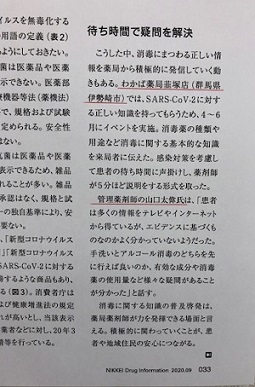 イルスを無毒化する
用語の定義（表2）
ようにしておきたい。
菌は医薬品や医薬
示できない。医薬部
療機器等法（薬機法）
で、規格および試験
定められる。安全性
はない。
菌は医薬品や医薬
できるため、雑品
れることが多い。雑
れず、規格と試
の独自基準により、安
ない。
、「新型コロナウイルス
」「新型コロナウイルス
SARS-CoV-2に対する
すような商品もあり、
る（図3）。消費者庁は
よび健康増進法の規定
れがあるとし、当該表示
業者などに対し、20年3
等を行っている。
待ち時間で疑問を解決
こうした中、消毒にまつわる正しい情
報を薬局から積極的に発信していく動
きもある。わかば薬局韮塚店（群馬県
伊勢崎市）では、SARS-CoV-2に対す
る正しい知識を持ってもらうため、4～6
月にイベントを実施。消毒薬の種類や
用途など消毒に関する基本的な知識
を来局者に伝えた。感染対策を考慮し
て患者の待ち時間に声掛けし、薬剤師
が5分ほど説明をする形式を取った。
管理薬剤師の山口太傳氏は、「患者
は多くの情報をテレビやインターネット
から得ているが、エビデンスに基づくも
のなのかよく分かっていないようだった。
手洗いとアルコール消毒のどちらを先
に行えば良いのか、有効な成分や消毒
薬の使用量など様々な疑問があること
が分かった」と話す。
消毒に関する知識の普及啓発は、
薬局薬剤師が力を発揮できる場面と言
える。積極的に関わっていくことが、患
者や地域住民の安心につながる。
NIKKEI Drug Information 2020.09 033